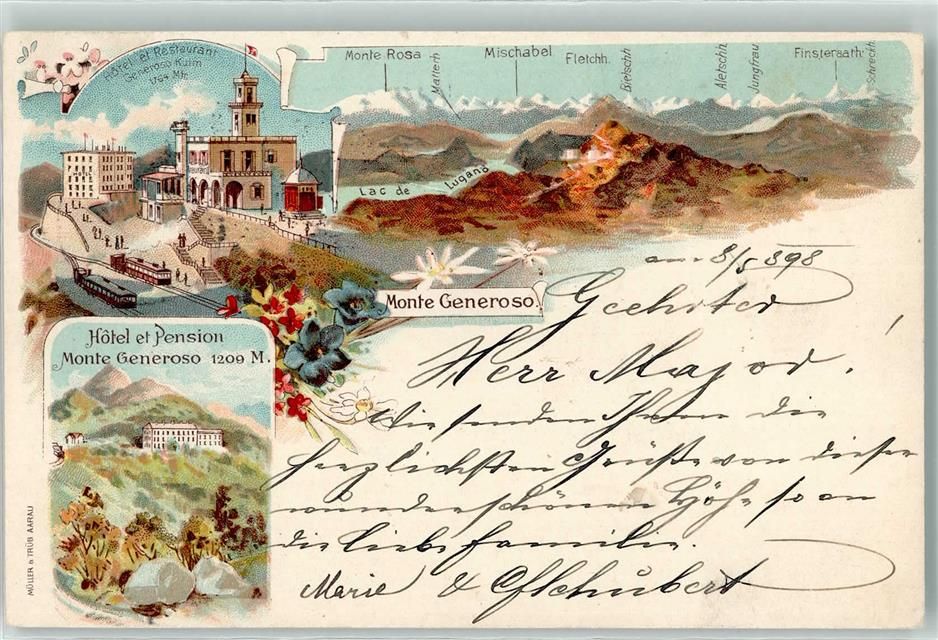 Hôtel et Restaurant
Generoso Kulm
1704 Mtr.
Monte Rosa
Matterh.
Mischabel
Fletchh.
Bietschh.
Aletschh.
Jungfrau
Finsteraarh.
Schreckh.
HOTEL
Lac de Lugano
Monte Generoso.
Hôtel et Pension
Monte Generoso 1209 M.
am 8/5 898
Geehrter
Herr Major!
Wir senden Ihnen die
herzlichsten Grüße von dieser
wunderschönen Höhe so an
die liebe Familie.
Marie & Schubert
MÜLLER & TRÜB AARAU